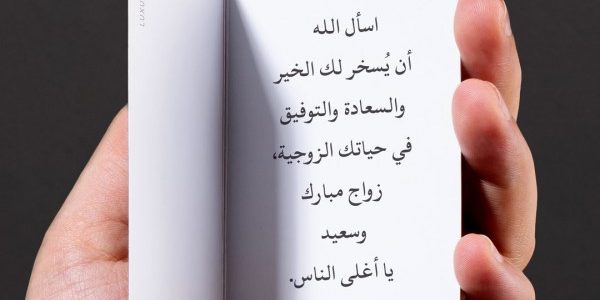 اسأل الله
أن يُسخر لك الخير
والسعادة والتوفيق
في حياتك الزوجية،
زواج مبارك
وسعيد
يا أغلى الناس.